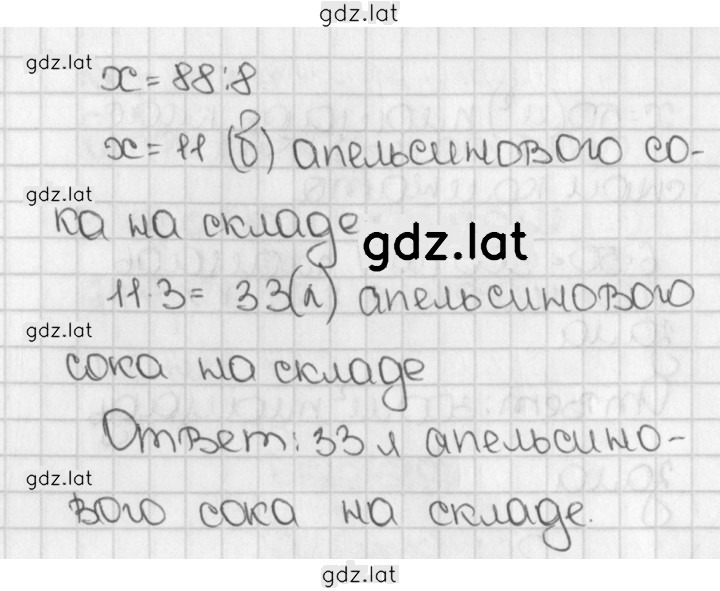 gdz.lat
gdz.lat
x = 88:8
x = 11 (б) апельсинового со-
gdz.lat
ка на складе
gdz.lat
11·3 = 33(л) апельсинового
gdz.lat
сока на складе
Ответ: 33 л апельсино-
gdz.lat
вого сока на складе.
gdz.lat